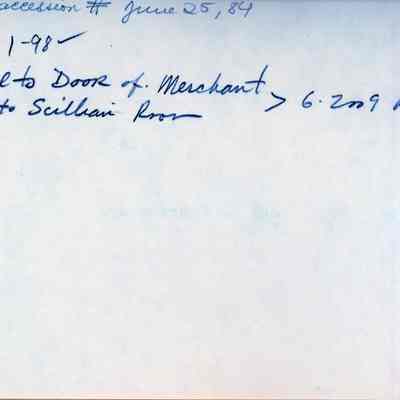 accession # June 25, 84
1-98 ✓
to Door of Merchant
to Scillian Room > 6.2009